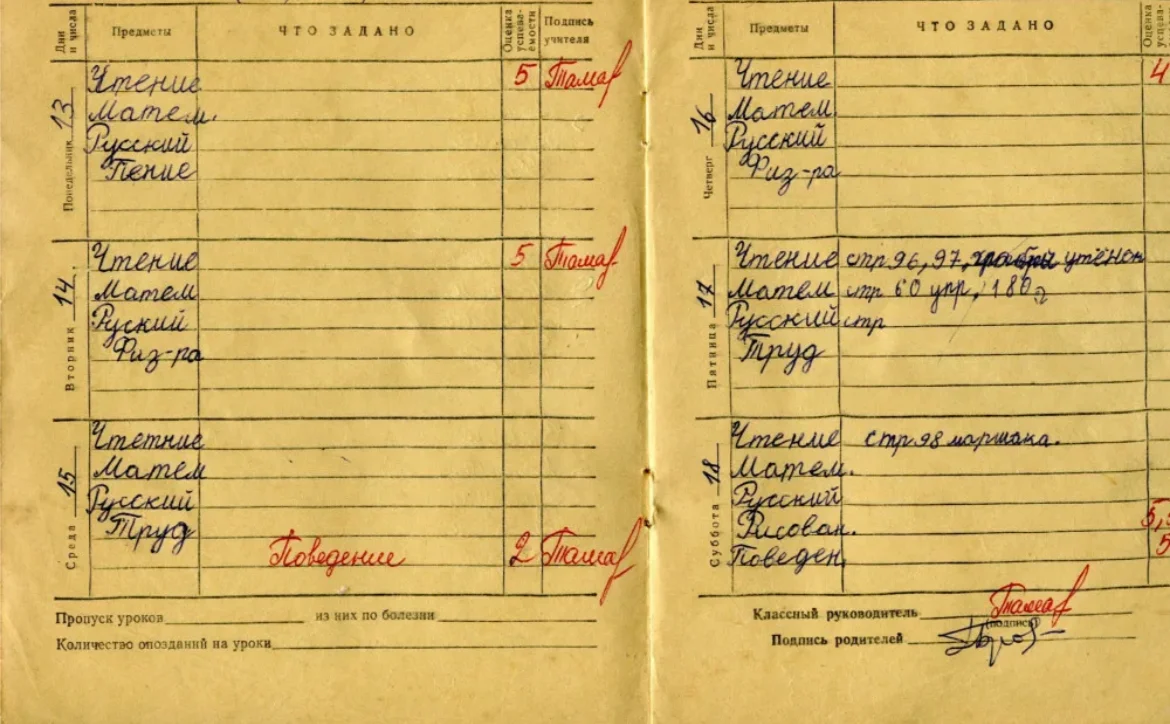 Дни и числа Предметы ЧТО ЗАДАНО Оценка успеваемости Подпись учителя
Понедельник 13
Чтение 5 Тамар
Матем.
Русский
Пение
Вторник 14
Чтение 5 Тамар
Матем
Руский
Физ-ра
Среда 15
Чтетние
Матем
Русский
Труд
Поведение 2 Тамар
Пропуск уроков из них по болезни
Количество опозданий на уроки
Дни и числа Предметы ЧТО ЗАДАНО Оценка успева-
Четверг 16
Чтение 4
Матем
Русский
Физ-ра
Пятница 17
Чтение стр 96, 97, утёнок
Матем стр 60 упр, 180
Русский стр
Труд
Суббота 18
Чтение стр. 98 маршака.
Матем.
Русский
Рисован. 5,
Поведен. 5
Классный руководитель Тамар
(подпись)
Подпись родителей